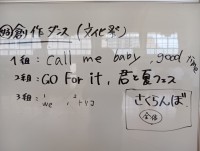 創作ダンス(文化祭)
1組: call me baby, good
2組: GO For it, 君と夏フェス
3組: we
さくらんぼ
全体